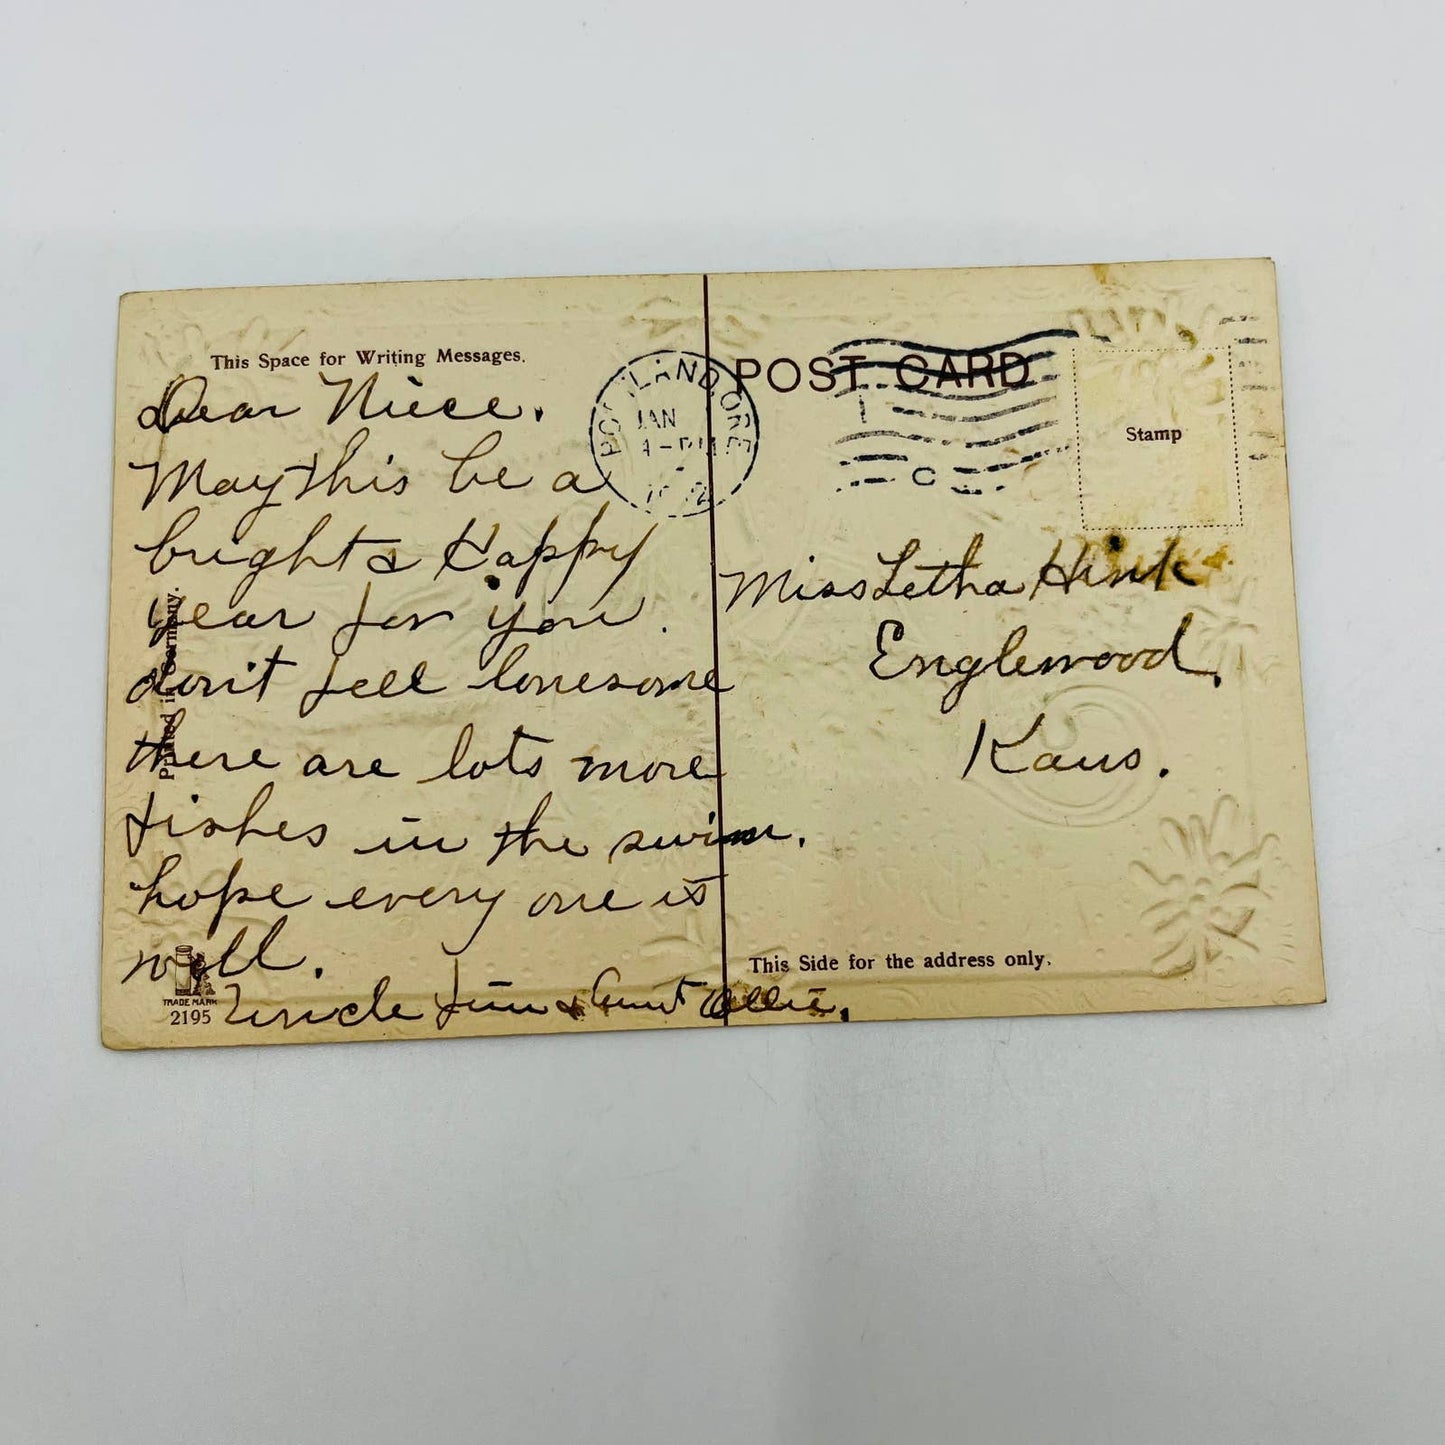 This Space for Writing Messages.
Dear Niece.
May this be a
bright & Happy
year for you.
don't feel lonesome
there are lots more
fishes in the swim.
hope every one is
well.
Uncle Jim & Aunt Ollie.
Printed in Germany.
TRADE MARK
2195
PORTLAND, ORE
JAN
POST CARD
Stamp
Miss Letha Hink
Englewood,
Kans.
This Side for the address only.